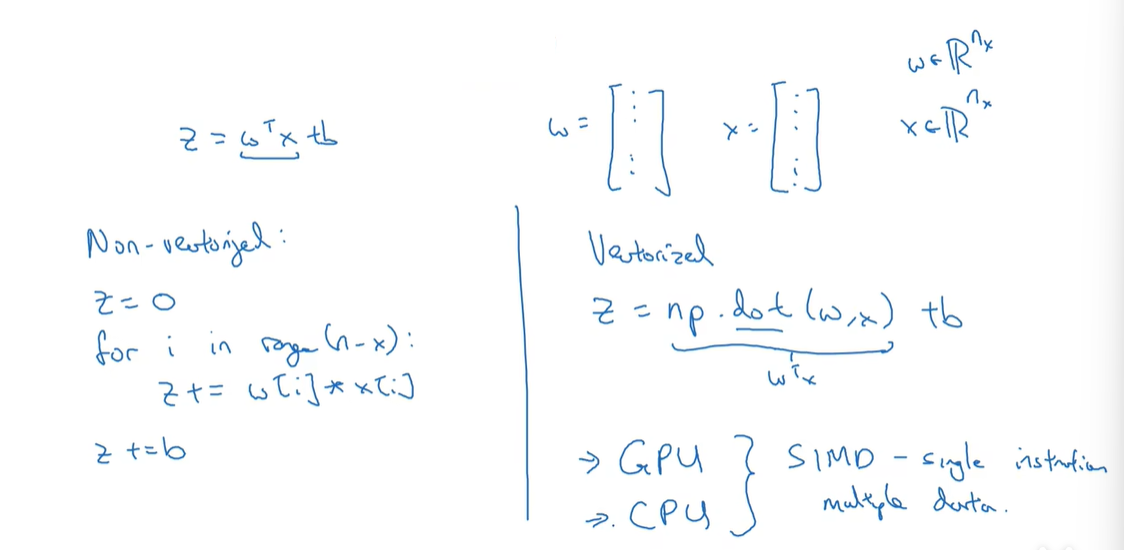 z = wᵀx + b
w = [⋮ ⋮]
x = [⋮ ⋮]
w ∈ ℝⁿˣ
x ∈ ℝⁿˣ
Non-vectorized:
z = 0
for i in range(n-x):
z += w[i] * x[i]
z += b
Vectorized
z = np.dot(w,x) + b
wᵀx
→ GPU
→ CPU
} SIMD - single instruction
multiple data.